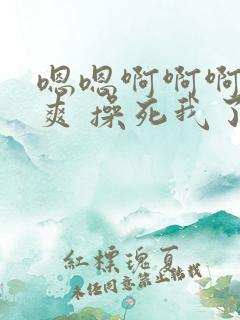 嗯嗯啊啊啊
爽操死我了
红标瑰夏
未经同意禁止转载